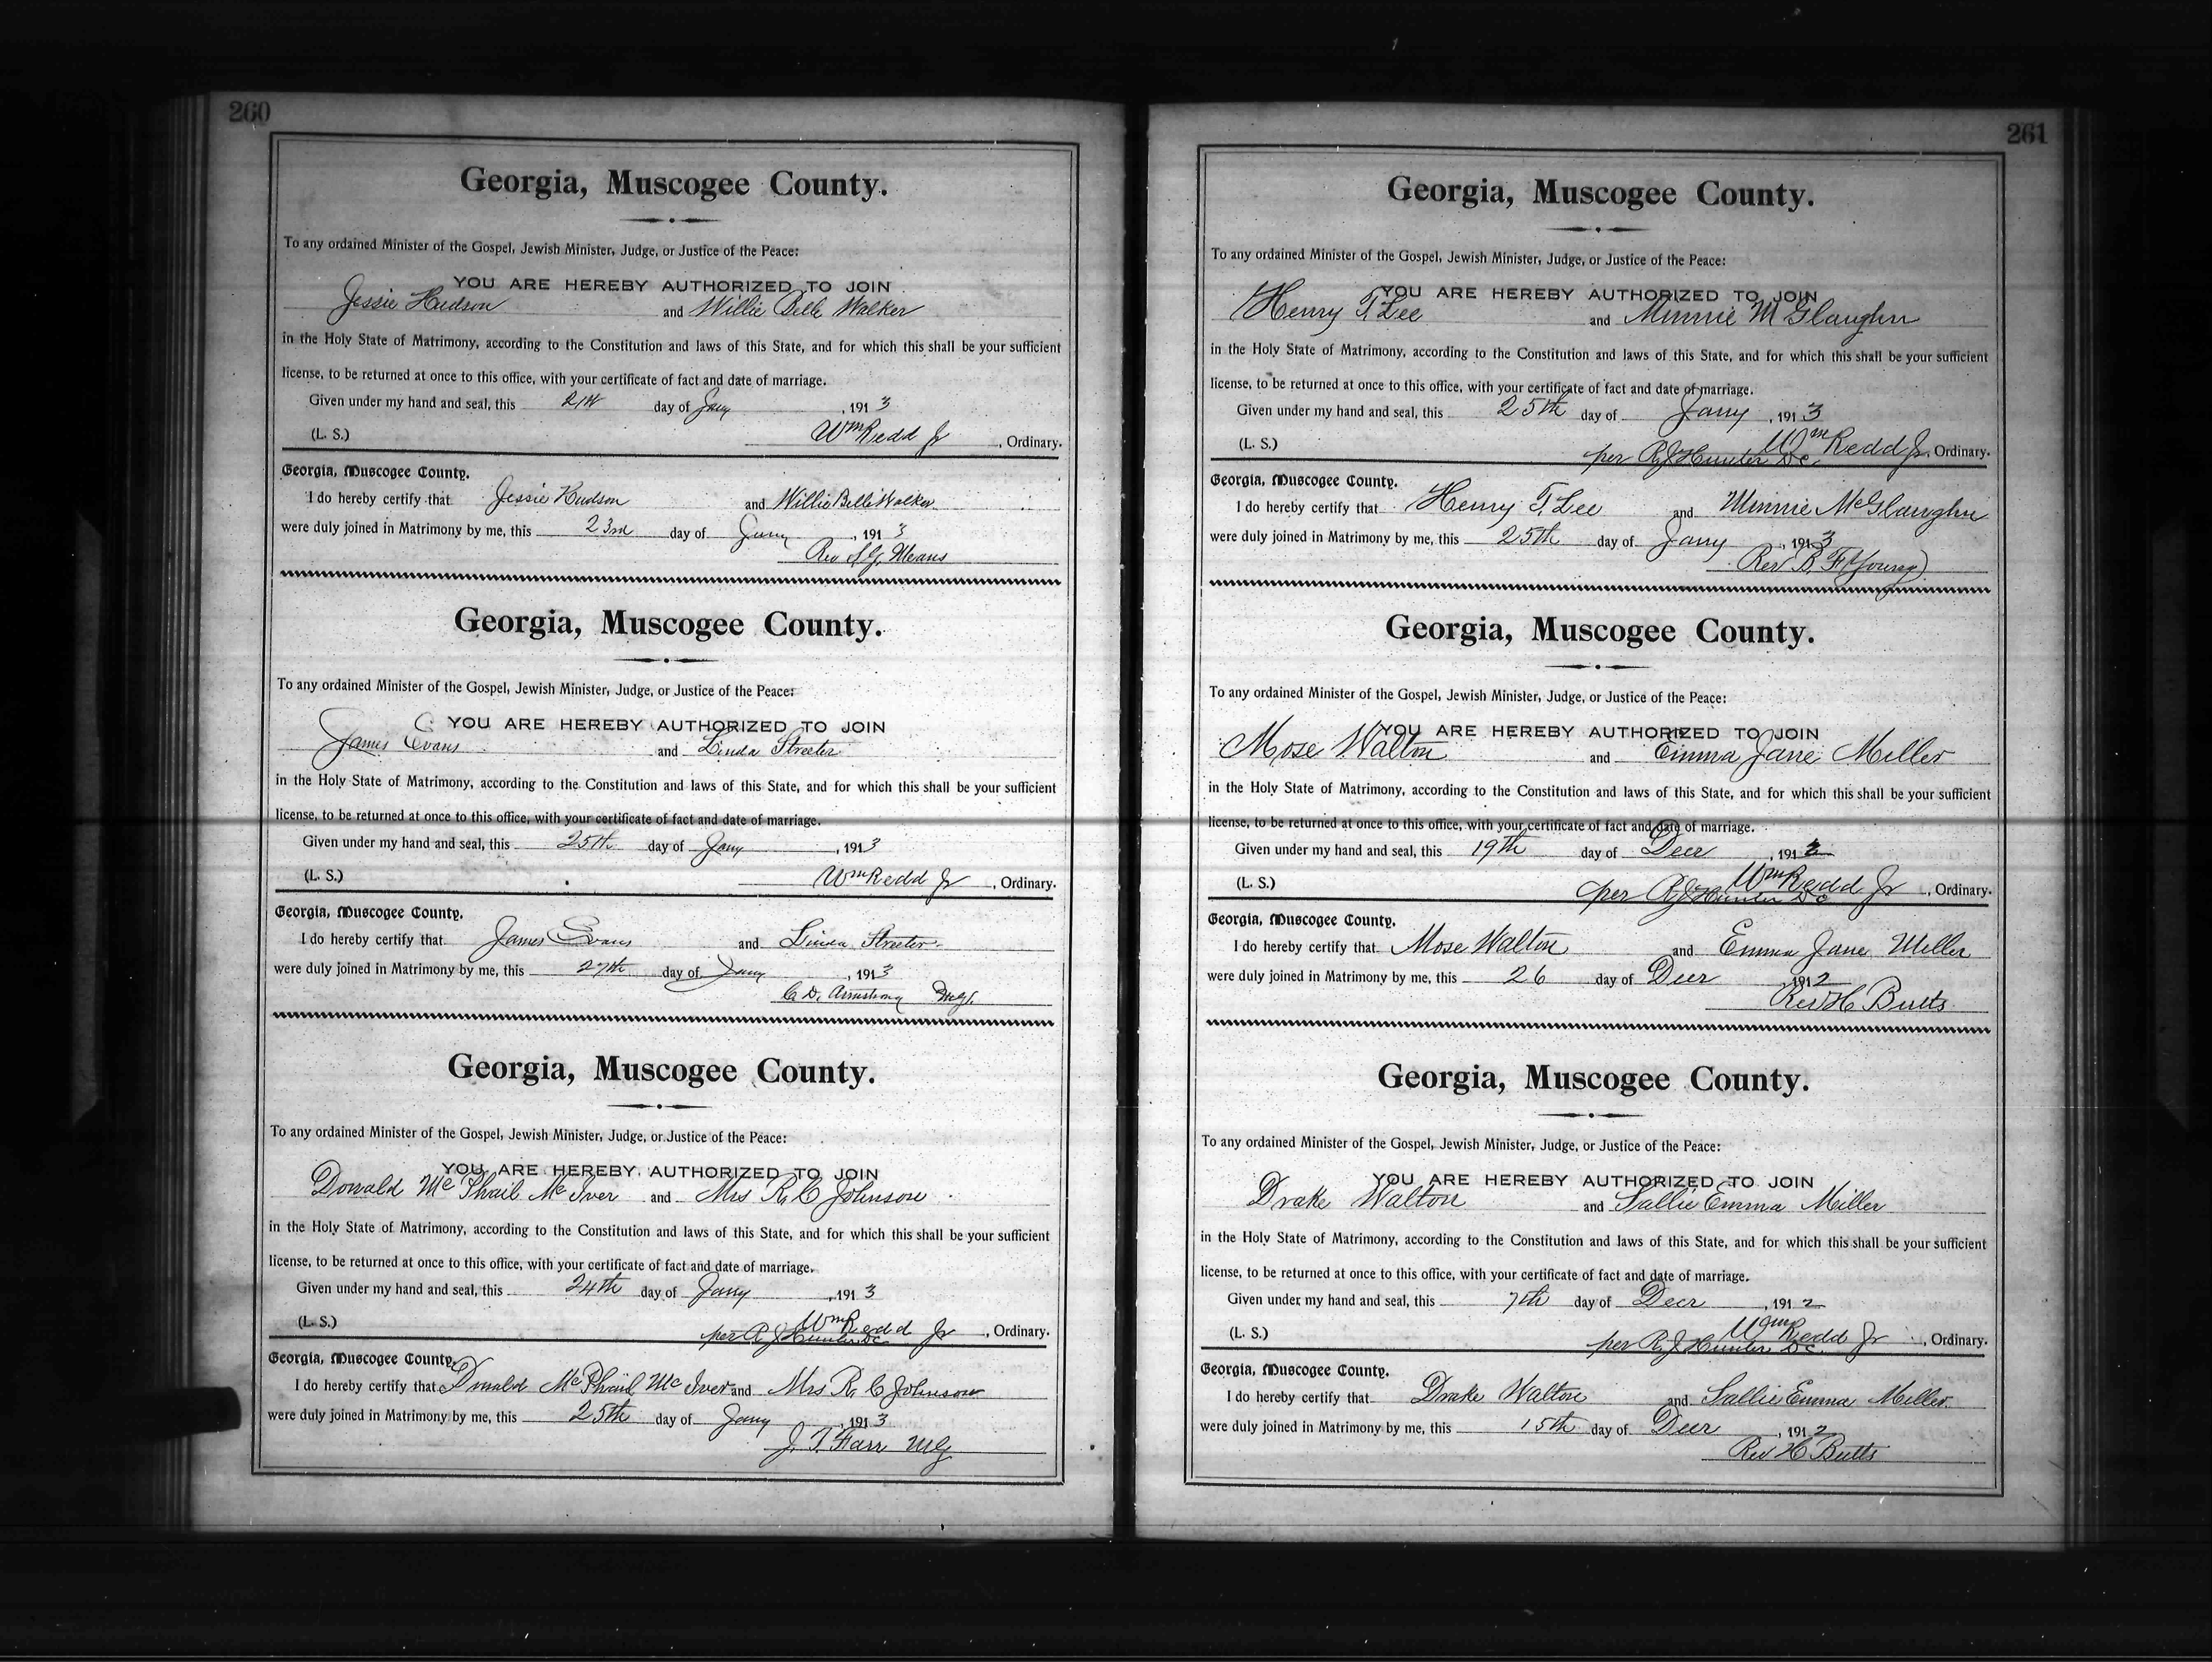 260
Georgia, Muscogee County.
To any ordained Minister of the Gospel, Jewish Minister, Judge, or Justice of the Peace:
YOU ARE HEREBY AUTHORIZED TO JOIN
Jessie Hudson and Willie Belle Walker
in the Holy State of Matrimony, according to the Constitution and laws of this State, and for which this shall be your sufficient
license, to be returned at once to this office, with your certificate of fact and date of marriage.
Given under my hand and seal, this 21st day of Jany, 1913
(L. S.) Wm Redd Jr, Ordinary.
Georgia, Muscogee County.
I do hereby certify that Jessie Hudson and Willie Belle Walker
were duly joined in Matrimony by me, this 23rd day of Jany, 1913
Rev S. G. Means
Georgia, Muscogee County.
To any ordained Minister of the Gospel, Jewish Minister, Judge, or Justice of the Peace:
YOU ARE HEREBY AUTHORIZED TO JOIN
James Evans and Linda Streeter
in the Holy State of Matrimony, according to the Constitution and laws of this State, and for which this shall be your sufficient
license, to be returned at once to this office, with your certificate of fact and date of marriage.
Given under my hand and seal, this 25th day of Jany, 1913
(L. S.) Wm Redd Jr, Ordinary.
Georgia, Muscogee County.
I do hereby certify that James Evans and Linda Streeter
were duly joined in Matrimony by me, this 27th day of Jany, 1913
C. D. Armstrong
Georgia, Muscogee County.
To any ordained Minister of the Gospel, Jewish Minister, Judge, or Justice of the Peace:
YOU ARE HEREBY AUTHORIZED TO JOIN
Donald McPhail McIver and Mrs R. C Johnson
in the Holy State of Matrimony, according to the Constitution and laws of this State, and for which this shall be your sufficient
license, to be returned at once to this office, with your certificate of fact and date of marriage.
Given under my hand and seal, this 24th day of Jany, 1913
(L. S.) Wm Redd Jr, Ordinary.
per R J Hunter DC
Georgia, Muscogee County.
I do hereby certify that Donald McPhail McIver and Mrs R. C Johnson
were duly joined in Matrimony by me, this 25th day of Jany, 1913
J. T. Farr MG
261
Georgia, Muscogee County.
To any ordained Minister of the Gospel, Jewish Minister, Judge, or Justice of the Peace:
YOU ARE HEREBY AUTHORIZED TO JOIN
Henry T. Lee and Minnie McGlaughn
in the Holy State of Matrimony, according to the Constitution and laws of this State, and for which this shall be your sufficient
license, to be returned at once to this office, with your certificate of fact and date of marriage.
Given under my hand and seal, this 25th day of Jany, 1913
(L. S.) Wm Redd Jr, Ordinary.
per R J Hunter DC.
Georgia, Muscogee County.
I do hereby certify that Henry T. Lee and Minnie McGlaughn
were duly joined in Matrimony by me, this 25th day of Jany, 1913
Rev B. F (Young)
Georgia, Muscogee County.
To any ordained Minister of the Gospel, Jewish Minister, Judge, or Justice of the Peace:
YOU ARE HEREBY AUTHORIZED TO JOIN
Mose Walton and Emma Jane Miller
in the Holy State of Matrimony, according to the Constitution and laws of this State, and for which this shall be your sufficient
license, to be returned at once to this office, with your certificate of fact and date of marriage.
Given under my hand and seal, this 19th day of Decr, 1912
(L. S.) Wm Redd Jr, Ordinary.
per R J Hunter DC
Georgia, Muscogee County.
I do hereby certify that Mose Walton and Emma Jane Miller
were duly joined in Matrimony by me, this 26 day of Decr 1912
Rev H Butts
Georgia, Muscogee County.
To any ordained Minister of the Gospel, Jewish Minister, Judge, or Justice of the Peace:
YOU ARE HEREBY AUTHORIZED TO JOIN
Drake Walton and Sallie Emma Miller
in the Holy State of Matrimony, according to the Constitution and laws of this State, and for which this shall be your sufficient
license, to be returned at once to this office, with your certificate of fact and date of marriage.
Given under my hand and seal, this 7th day of Decr, 1912
(L. S.) Wm Redd Jr, Ordinary.
per R J Hunter DC.
Georgia, Muscogee County.
I do hereby certify that Drake Walton and Sallie Emma Miller
were duly joined in Matrimony by me, this 15th day of Decr, 1912
Rev H Butts